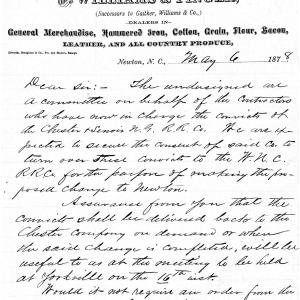 WILLIAMS & FINGER,
(Successors to Gaither, Williams & Co.,)
-DEALERS IN-
General Merchandise, Hammered Iron, Cotton, Grain, Flour, Bacon,
LEATHER, AND ALL COUNTRY PRODUCE,
Newton, N. C., May 6 1878
Dear Sir:- The undersigned are
a committee on behalf of the contractors
who have now in charge the convicts of
the Chester & Lenoir N. G. R.R. Co. We are ex
pected to secure the consent of said Co. to
turn over their convicts to the W. N. C.
R.R. Co. for the purpose of making the pro
posed change to Newton.
Assurance from you that the
convicts shall be delivered back to the
Chester Company on demand or when
the said change is completed, will be
useful to us at this meeting to be held
at Yorkville on the 16th inst.
Would it not require an order from the